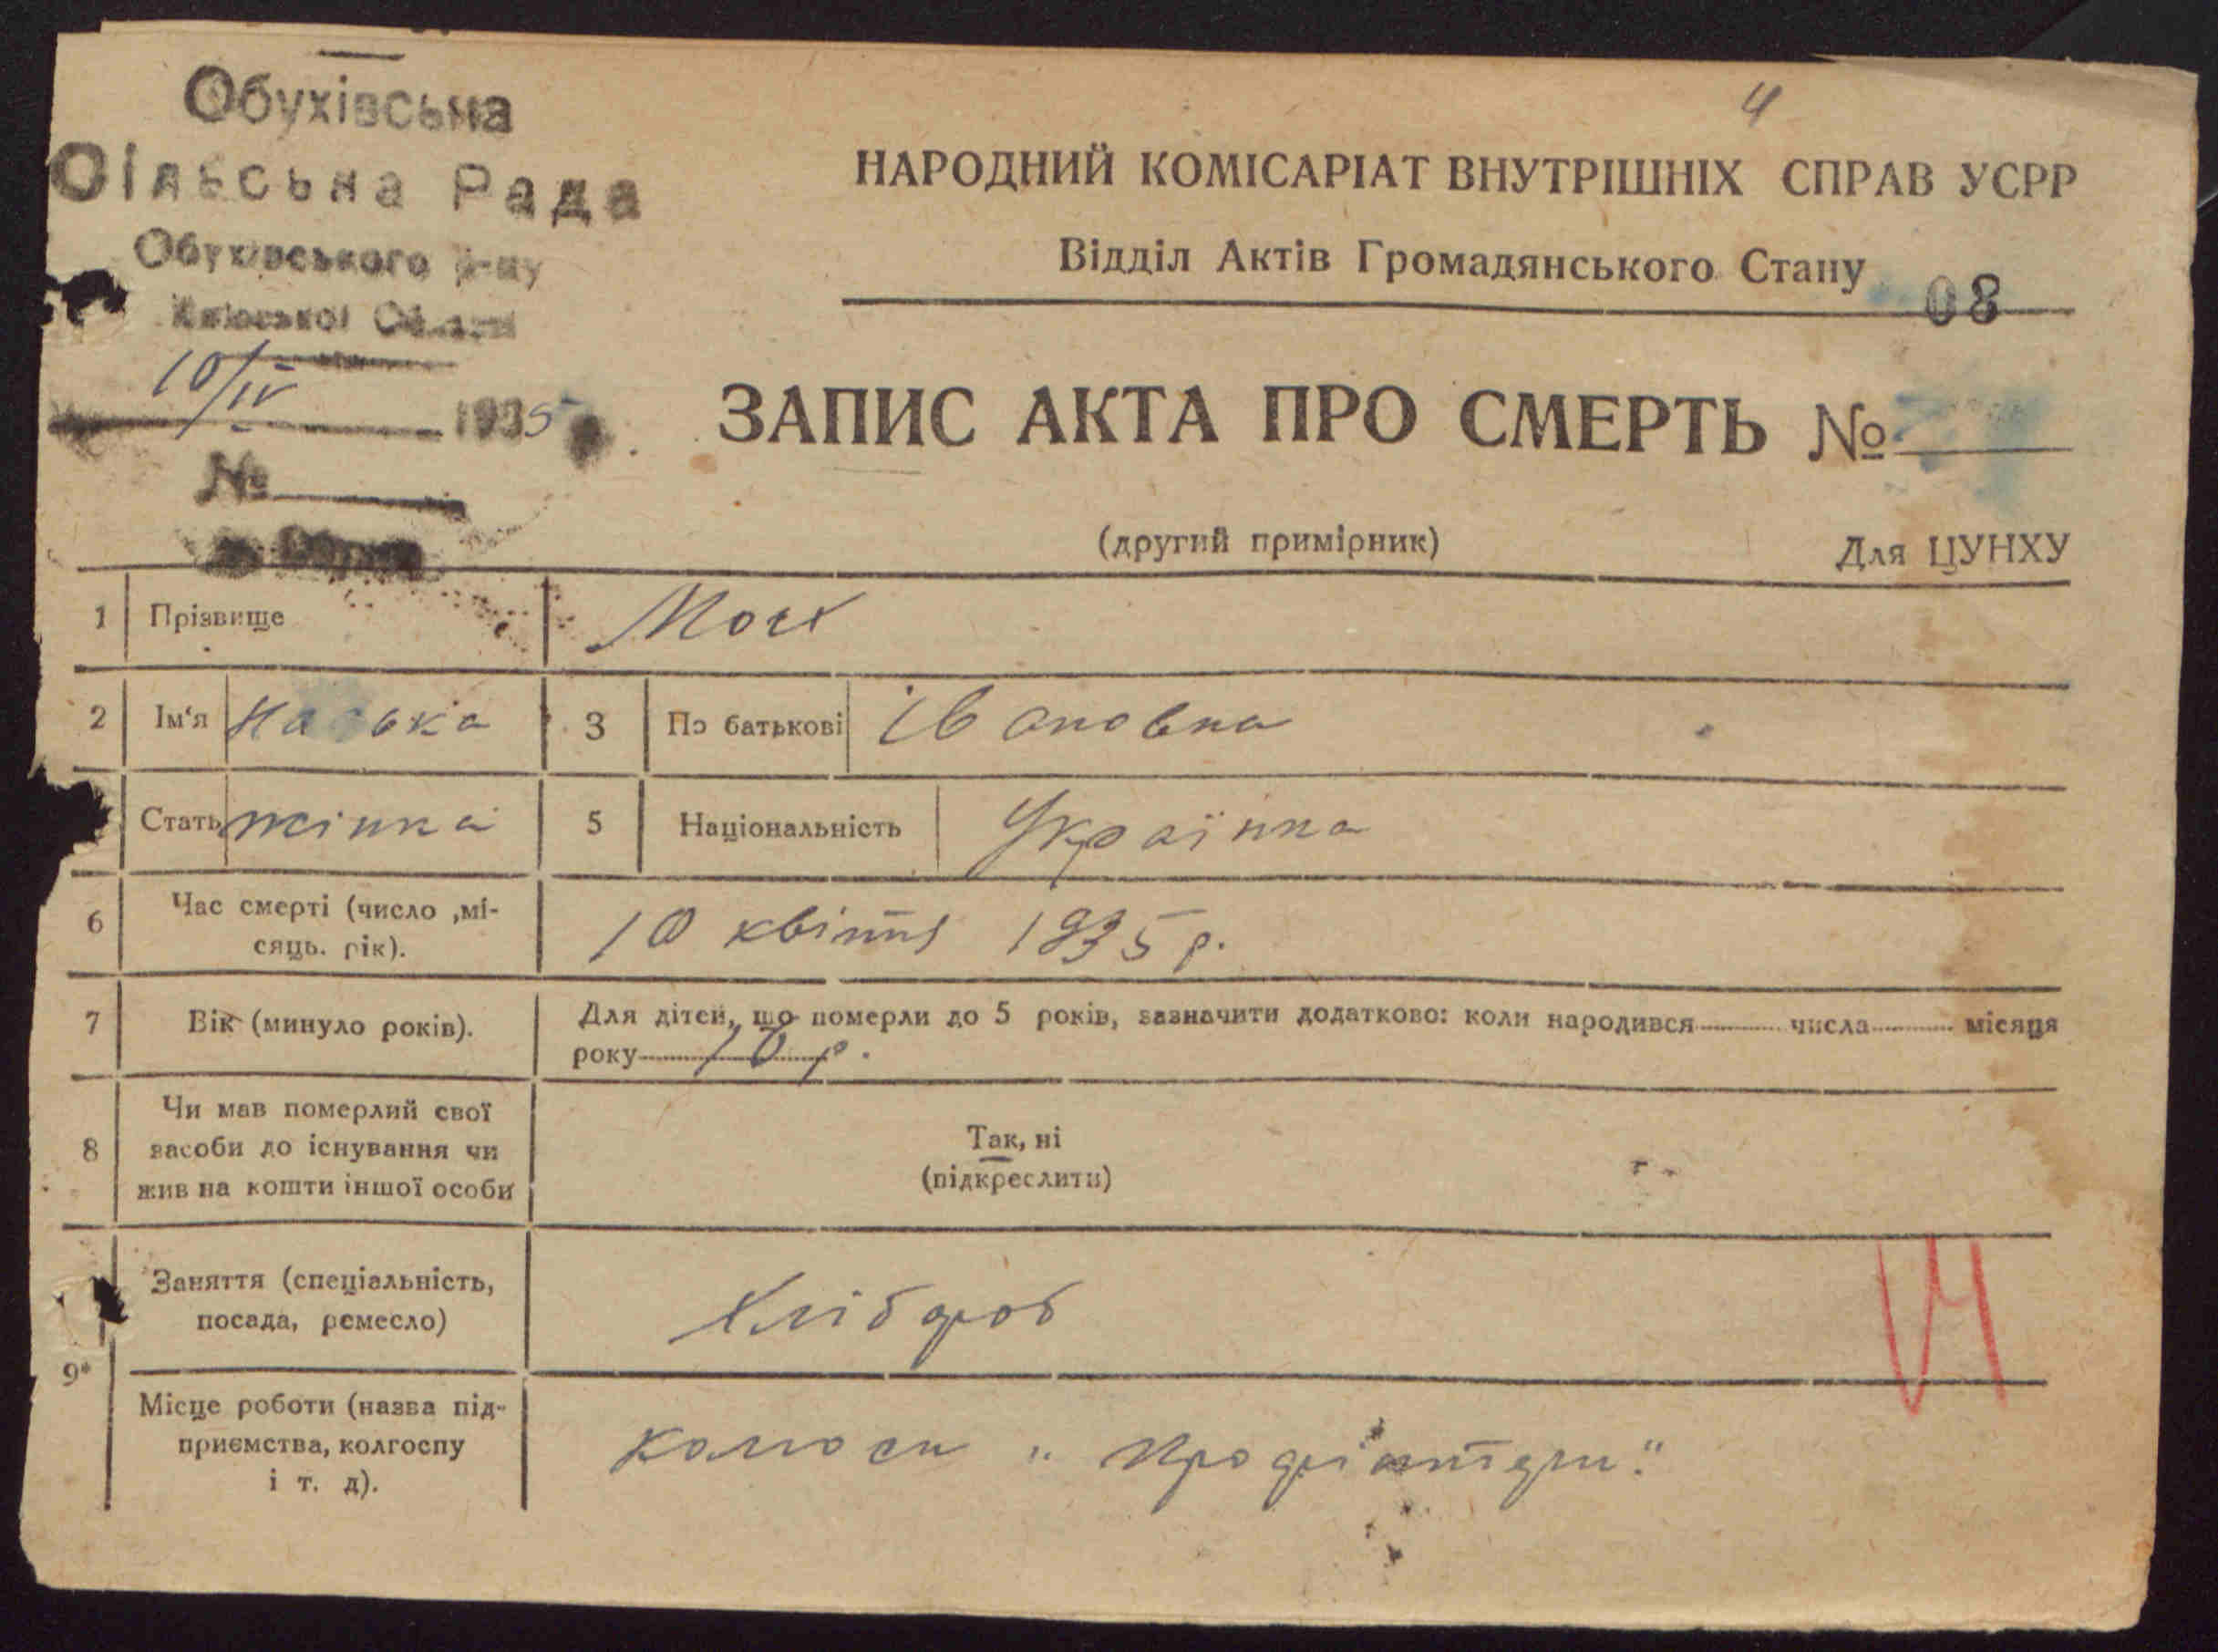 Обухівська
Сільська Рада
Обухівського р-ну
Київської Області
10/IV 1935
№
4
НАРОДНИЙ КОМІСАРІАТ ВНУТРІШНІХ СПРАВ УСРР
Відділ Актів Громадянського Стану
08
ЗАПИС АКТА ПРО СМЕРТЬ №
(другий примірник) Для ЦУНХУ
1 Прізвище
2 Ім'я Наська 3 По батькові Івановна
Стать жінка 5 Національність Українка
6 Час смерті (число ,мі-
сяць. рік). 10 квітня 1935 р.
7 Вік (минуло років). Для дітей, що померли до 5 років, зазначити додатково: коли народився числа місяця
року р.
8 Чи мав померлий свої
засоби до існування чи
жив на кошти іншої особи
Так, ні
(підкреслити)
Заняття (спеціальність,
посада, ремесло) Хлібороб
9*
Місце роботи (назва під-
приємства, колгоспу
і т. д).